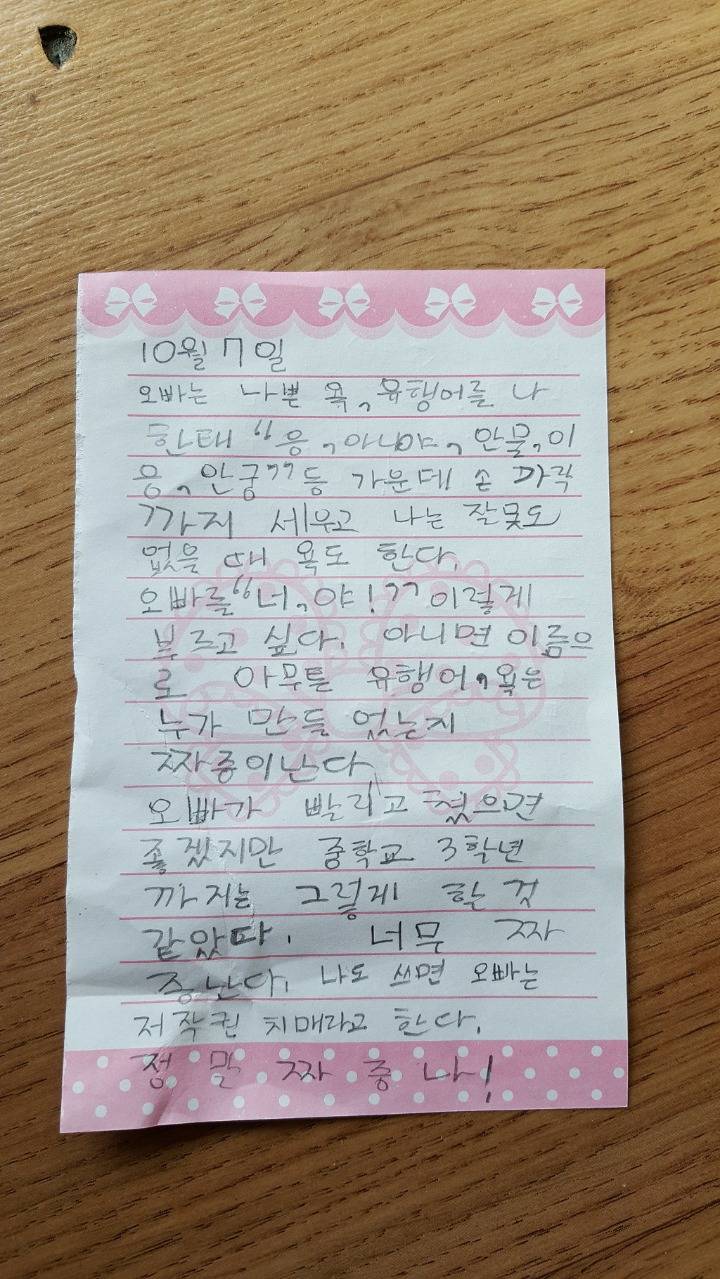 10월 7일
오빠는 나쁜 욕, 유행어를 나
한태 "응, 아니야, 안물, 이
응, 안궁" 등 가운데 손 까락
까지 세우고 나는 잘못도
없을 때 욕도 한다.
오빠를 "너, 야!" 이렇게
부르고 싶다. 아니면 이름으
로 아무튼 유행어, 욕은
누가 만들 었는지
짜증이난다
오빠가 빨리고쳤으면
좋겠지만 중학교 3학년
까지는 그렇게 할 것
같았다. 너무 짜
증난다. 나도 쓰면 오빠는
저작권 치매라고 한다.
정말 짜증나!